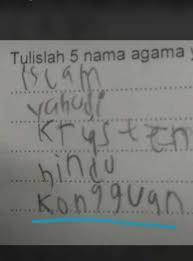 Tulislah 5 nama agama
Islam
yahudi
krysten
hindu
kongguan